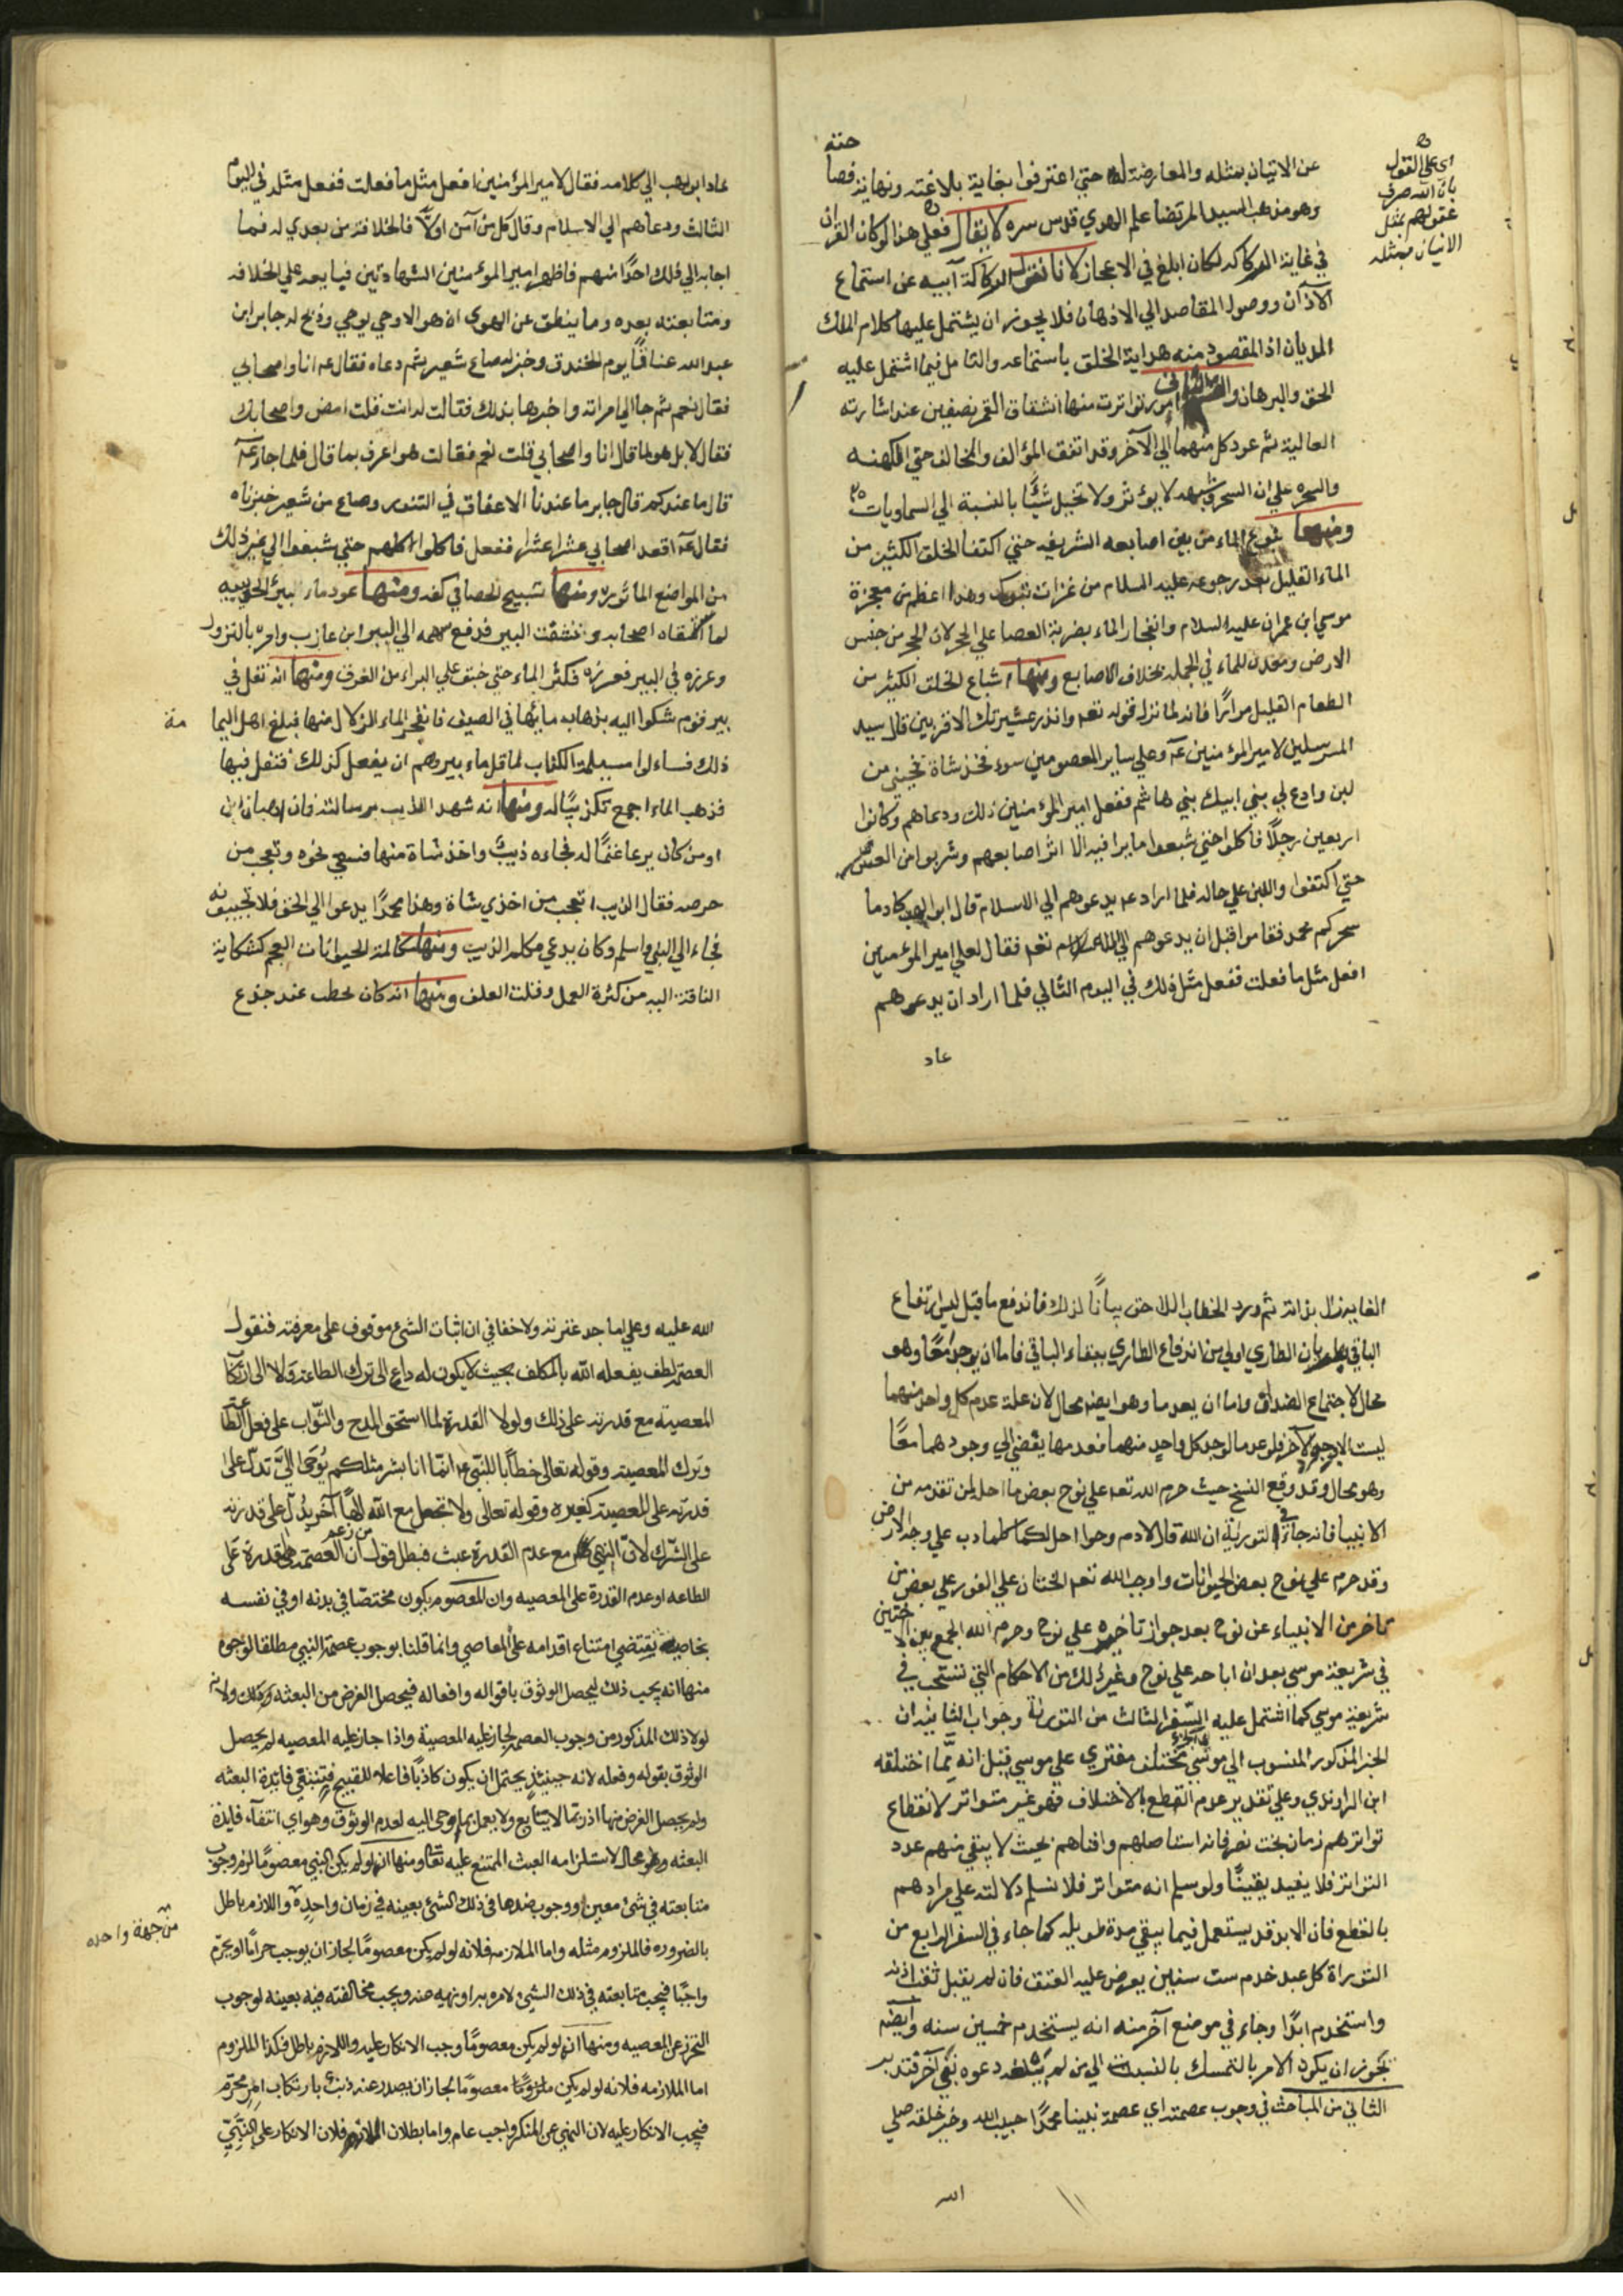 حته
عن الاتيان بمثله والمعارضة له حتي اعترفوا بغاية بلاغته ونهاية فصا
وهو مذهب السيد المرتضا علم الهدي قدس سره لا يقال فعلي هذا لو كان القران
في غاية الركاكة لكان ابلغ في الاعجاز لانا نقول الركاكة آبيه عن استماع
الآذان ووصول المقاصد الي الاذهان فلا يجوز ان يشتمل عليها كلام الملك
الديان اذ المقصود منه هداية الخلق باستماعه والتامل فيما اشتمل عليه
الحق والبرهان والثاني امور تواترت منها انشقاق القمر نصفين عند اشارته
العالية ثم عود كل منهما الي الآخر وقد اتفق المؤالف والمخالف حتي الكهنه
والسحره علي ان السحر وشبهه لا يؤثر ولا تخيل شيًا بالنسبة الي السماويات
ومنها نبوع الماء من بين اصابعه الشريفه حتي اكتفا الخلق الكثير من
الماء القليل بعد رجوعه عليه السلام من غزات تبوك وهذا اعظم من معجزة
موسي ابن عمران عليه السلام وانفجار الماء بضربة العصا علي الحجر لان الحجر من جنس
الارض ومعدن للماء في الجمله بخلاف الاصابع ومنها اشباع الخلق الكثير من
الطعام القليل مرارًا فانه لما نزل قوله تعه وانذر عشيرتك الاقربين قال سيد
المرسلين لامير المؤمنين عه وعلي ساير المعصومين سوء فخذ شاة تجيني من
لبن وادع لي بني ابيك بني هاشم ففعل امير المؤمنين ذلك ودعاهم وكانوا
اربعين رجلاً فاكلوا حتي شبعوا ما يرا فيه الا اثر اصابعهم وشربوا من العس
حتي اكتفوا واللبن علي حاله فلما اراد عه يدعوهم الي الاسلام قال ابو لهب كاد ما
سحركم محمد فقاموا قبل ان يدعوهم الي الله تعه فقال لعلي امير المؤمنين
افعل مثل ما فعلت ففعل مثل ذلك في اليوم الثاني فلما اراد ان يدعوهم
عاد
اي علي القول
بان الله صرف
عقولهم بمثل
الاتيان بمثله
عاد ابو لهب الي كلامه فقال لامير المؤمنين افعل مثل ما فعلت ففعل مثله في اليوم
الثالث ودعاهم الي الاسلام وقال كل من آمن اولاً فالخلافة من بعدي له فما
اجابه الي ذلك احدًا منهم فاظهر امير المؤمنين الشهادتين فبايعه علي الخلافه
ومتابعته بعده وما ينطق عن الهوي ان هو الا وحي يوحي وذبح له جابر ابن
عبد الله عناقًا يوم الخندق وخبز له صاع شعير ثم دعاه فقال عه انا واصحابي
فقال نعم ثم جا الي امراته واخبرها بذلك فقالت له انت قلت امض واصحابك
فقال لا بل هو لما قال انا واصحابي قلت نعم فقالت هو اعرف بما قال فلما جاء عه
قال ما عندكم قال جابر ما عندنا الا عناق في التنور وصاع من شعير خبزناه
فقال عه اقعد اصحابي عشرا عشرا ففعل فاكلوا كلهم حتي شبعوا الي غير ذلك
من المواضع الماثوره ومنها تسبيح الحصا في كفه ومنها عود ماء البير الحديبيه
لما استقاه اصحابه ونشفت البير فدفع سهمه الي البراء ابن عازب وامره بالنزول
وغرزه في البير فغرزه فكثر الماء حتي خيف علي البراء من الغرق ومنها انه تفل في
بير قوم شكوا اليه بذهاب مائها في الصيف فانفجر الماء الزلال منها فبلغ اهل اليما
مة
ذلك فساءلوا مسيلمة الكذاب لما قل ماء بيروهم ان يفعل كذلك فتفل فيها
فذهب الماء اجمع تكذيبًا له ومنها انه شهد الذيب برسالته فان اهبان ابن
اوس كان يرعا غنمًا له فجاءه ذيبٌ واخذ شاة منها فسعي نحوه وتعجب من
حرصه فقال الذيب اتعجب من اخذي شاة وهذا محمدًا يدعوا الي الحق فلا تجيبونه
فجاء الي النبي واسلم وكان يدعي مكلم الذيب ومنها كلامة الحيوانات العجم كشكاية
الناقة اليه من كثرة العمل وقلت العلف ومنها انه كان يخطب عند جذع
الغاية زال بذاته ثم ورد الخطاب اللاحق بيانًا لذلك فاندفع ما قيل ليس ارتفاع
الباقي بطريان الطاري اولي من اندفاع الطاري ببقاء الباقي فاما ان يوجدا معًا وهو
محال لاجتماع الضدان واما ان يعدما وهو ايضه محال لان علة عدم كل واحد منهما
ليست الا وجود الآخر فلو عدما لوجد كل واحدٍ منهما فعدمها يقضي الي وجودهما معًا
وهو محال وقد وقع النسخ حيث حرم الله تعه علي نوح بعض ما احل لمن تقدمه من
الانبيا فانه جاء في التوراية ان الله قال لادم وحوا احل لكما كلما دب علي وجه الارض
وقد حرم علي نوح بعض الحيوانات واوجب الله تعه الختان علي الفور علي بعض من
تاخر من الانبياء عن نوح بعد جواز تاخيره علي نوح وحرم الله الجمع بين الاختين
في شريعة موسي بعد ان اباحه علي نوح وغير ذلك من الاحكام التي نسخت في
شريعة موسي كما اشتمل عليه السّفر الثالث من التوراة وجواب الثاني ان
الخبر المذكور المنسوب الي موسي مختلق مفتري علي موسي قيل انه ممّا اختلقه
ابن الراوندي وعلي تقدير عدم القطع بالاختلاف فهو غير متواتر لانقطاع
تواترهم زمان بخت نصر فانه استاصلهم وافناهم بحيث لا يبقي منهم عدد
التواتر فلا يفيد يقينًا ولو سلم انه متواتر فلا نسلم دلالته علي مرادهم
بالقطع فان الابد قد يستعمل فيما يبقي مدة طويله كما جاء في السفر الرابع من
التوراة كل عبد خدم ست سنين يعرض عليه العتق فان لم يقبل ثقب اذنه
واستخدم ابدًا وجاء في موضع آخر منه انه يستخدم خمسين سنه وايضه
يجوز ان يكون الامر بالتمسك بالسبت الي من لم دعوه نبي آخر فتدبر
الثاني من المباحث في وجوب عصمته اي عصمة نبينا محمدًا حبيب الله وخير خلقه صلي
الله
الله عليه وعلي اماجد عترته ولا خفا في ان اثبات الشئ موقوف على معرفته فنقول
العصمة لطف يفعله الله بالمكلف بحيث لا يكون له داع الى ترك الطاعة ولا الى ارتكاب
المعصيته مع قدرته على ذلك ولولا القدرة لما استحق المدح والثواب على فعل الطاعة
وترك المعصيته وقوله تعالى خطابًا للنبي عه انما انا بشر مثلكم يُوحَى الىّ تدل على
قدرته على المعصية كغيره وقوله تعالى ولا تجعل مع الله الٰهًا آخر يدُل على قدرته
على الشرك لانّ النهي مع عدم القدرة عبث فبطل قول من زعم ان العصمة هي القدرة على
الطاعه او عدم القدرة على المعصيه وان المعصوم يكون مختصّا في بدنه او في نفسه
بخاصية يقتضي امتناع اقدامه على المعاصي وانما قلنا بوجوب عصمة النبي مطلقا لوجوه
منها انه يجب ذلك ليحصل الوثوق باقواله وافعاله فيحصل الغرض من البعثه وذلك ولانه
لولا ذلك المذكور من وجوب العصمة لجاز عليه المعصية واذا جاز عليه المعصيه لم يحصل
الوثوق بقوله وفعله لانه حينئذٍ يحتمل ان يكون كاذبًا فاعلا للقبيح فينتفي فايدة البعثه
ولم يحصل الغرض منها اذ ربّما لا يتابع ولا يعمل بما يوحى اليه لعدم الوثوق وهو اي انتفآء فايدة
البعثه وهو محال لاستلزامه العبث الممتنع عليه تعالى ومنها انه لو لم يكن النبي معصومًا لزم وجوب
متابعته في شئ معين ووجوب ضدها فى ذلك الشئ بعينه في زمان واحدٍ واللازم باطل
من جهة واحده
بالضروره فالملزوم مثله واما الملازمه فلانه لو لم يكن معصومًا لجاز ان يوجب حرامًا او يحرّم
واجبًا فيجب متابعته في ذلك الشئ لامره به او نهيه عنه ويجب مخالفته فيه بعينه لوجوب
التحرز عن المعصيه ومنها انه لو لم يكن معصومًا وجب الانكار عليه واللازم باطل فكذا الملزوم
اما الملازمه فلانه لو لم يكن معصومًا لجاز ان يصدر عنه ذنب بارتكاب امر محرّم
فيجب الانكار عليه لان النهي عن المنكر واجب عام واما بطلان اللازم فلان الانكار على النبيّ